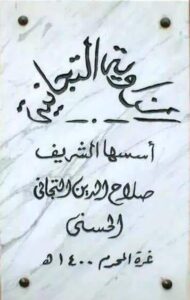 التجانية
أسسها الشريف
صلاح الدين التجانى
الحسنى
غرة المحرم ١٤٠٠ هـ